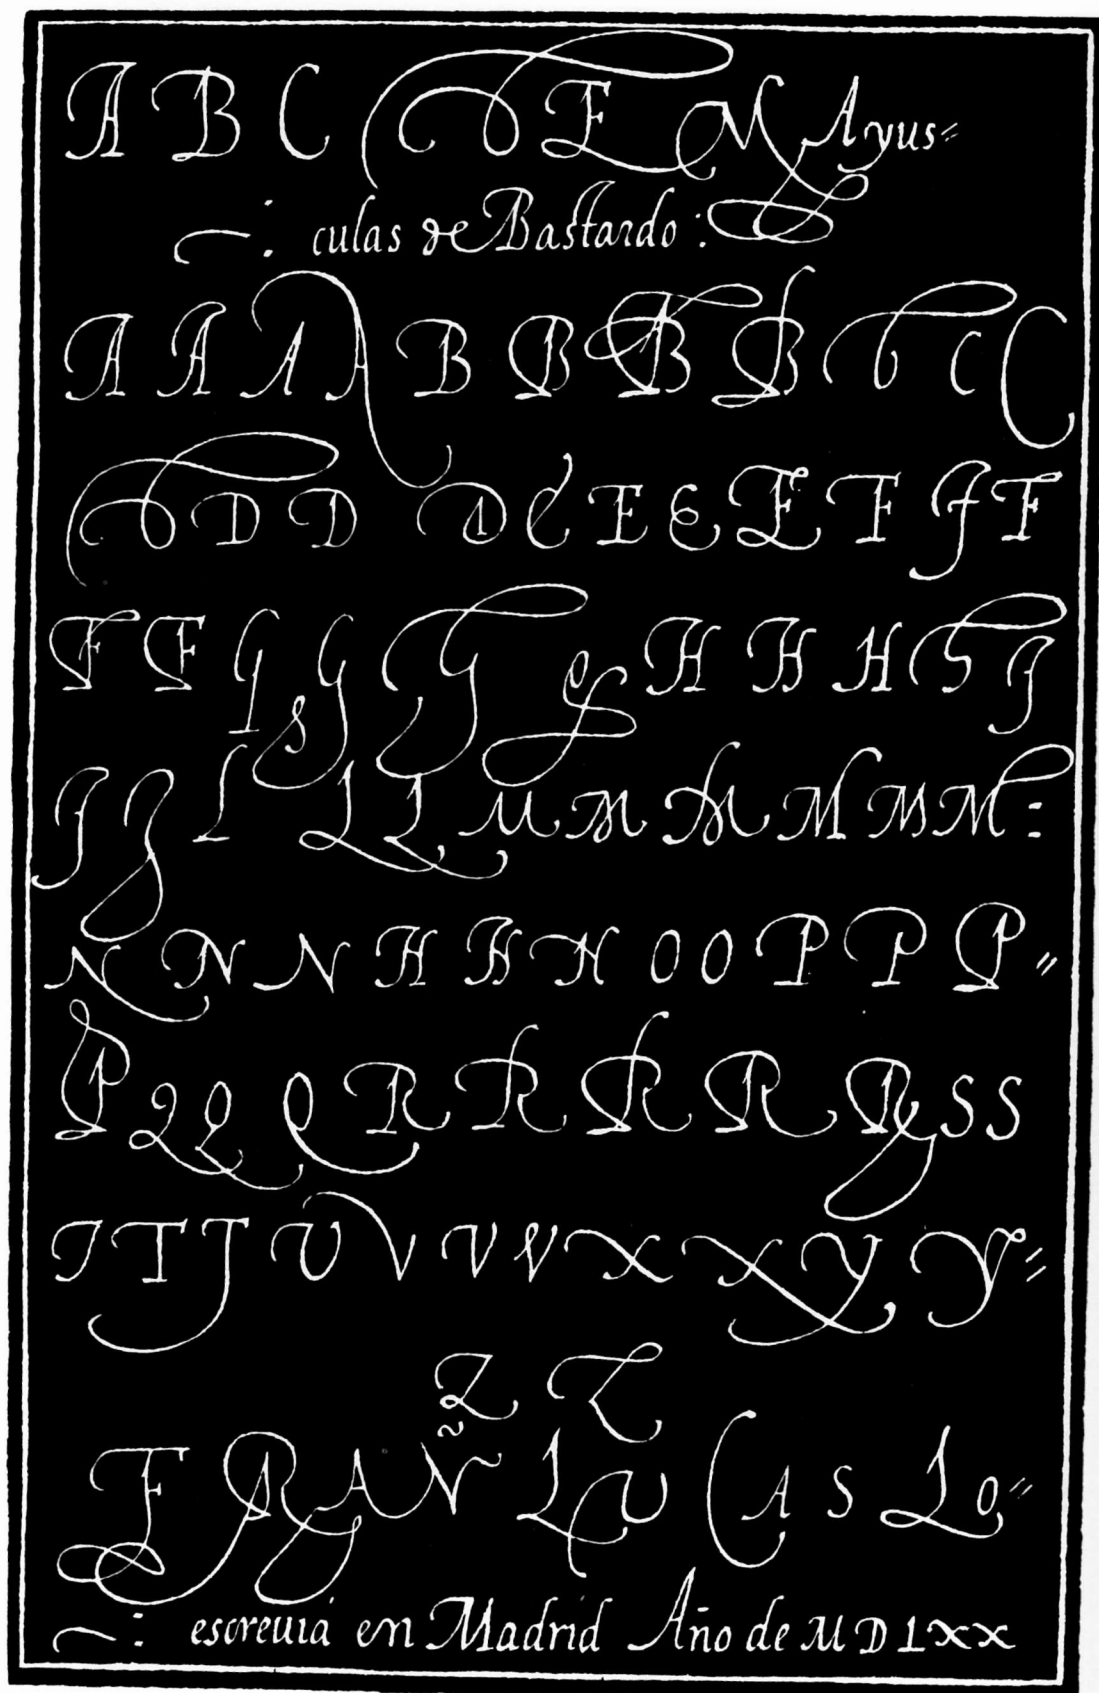 A B C D E M Ayus=
culas de Bastardo:
A A A A B B B B C C C
D D D D E E E E F F F
F F G G G G H H H H I
I I L L L M M M M M M:
N N N H H H O O P P P =
P Q Q Q R R R R R S S
T T T V V V V X X Y Y =
Z Z
F R A Ñ L V C A S L o =
: escreuiá en Madrid Año de MDLXX